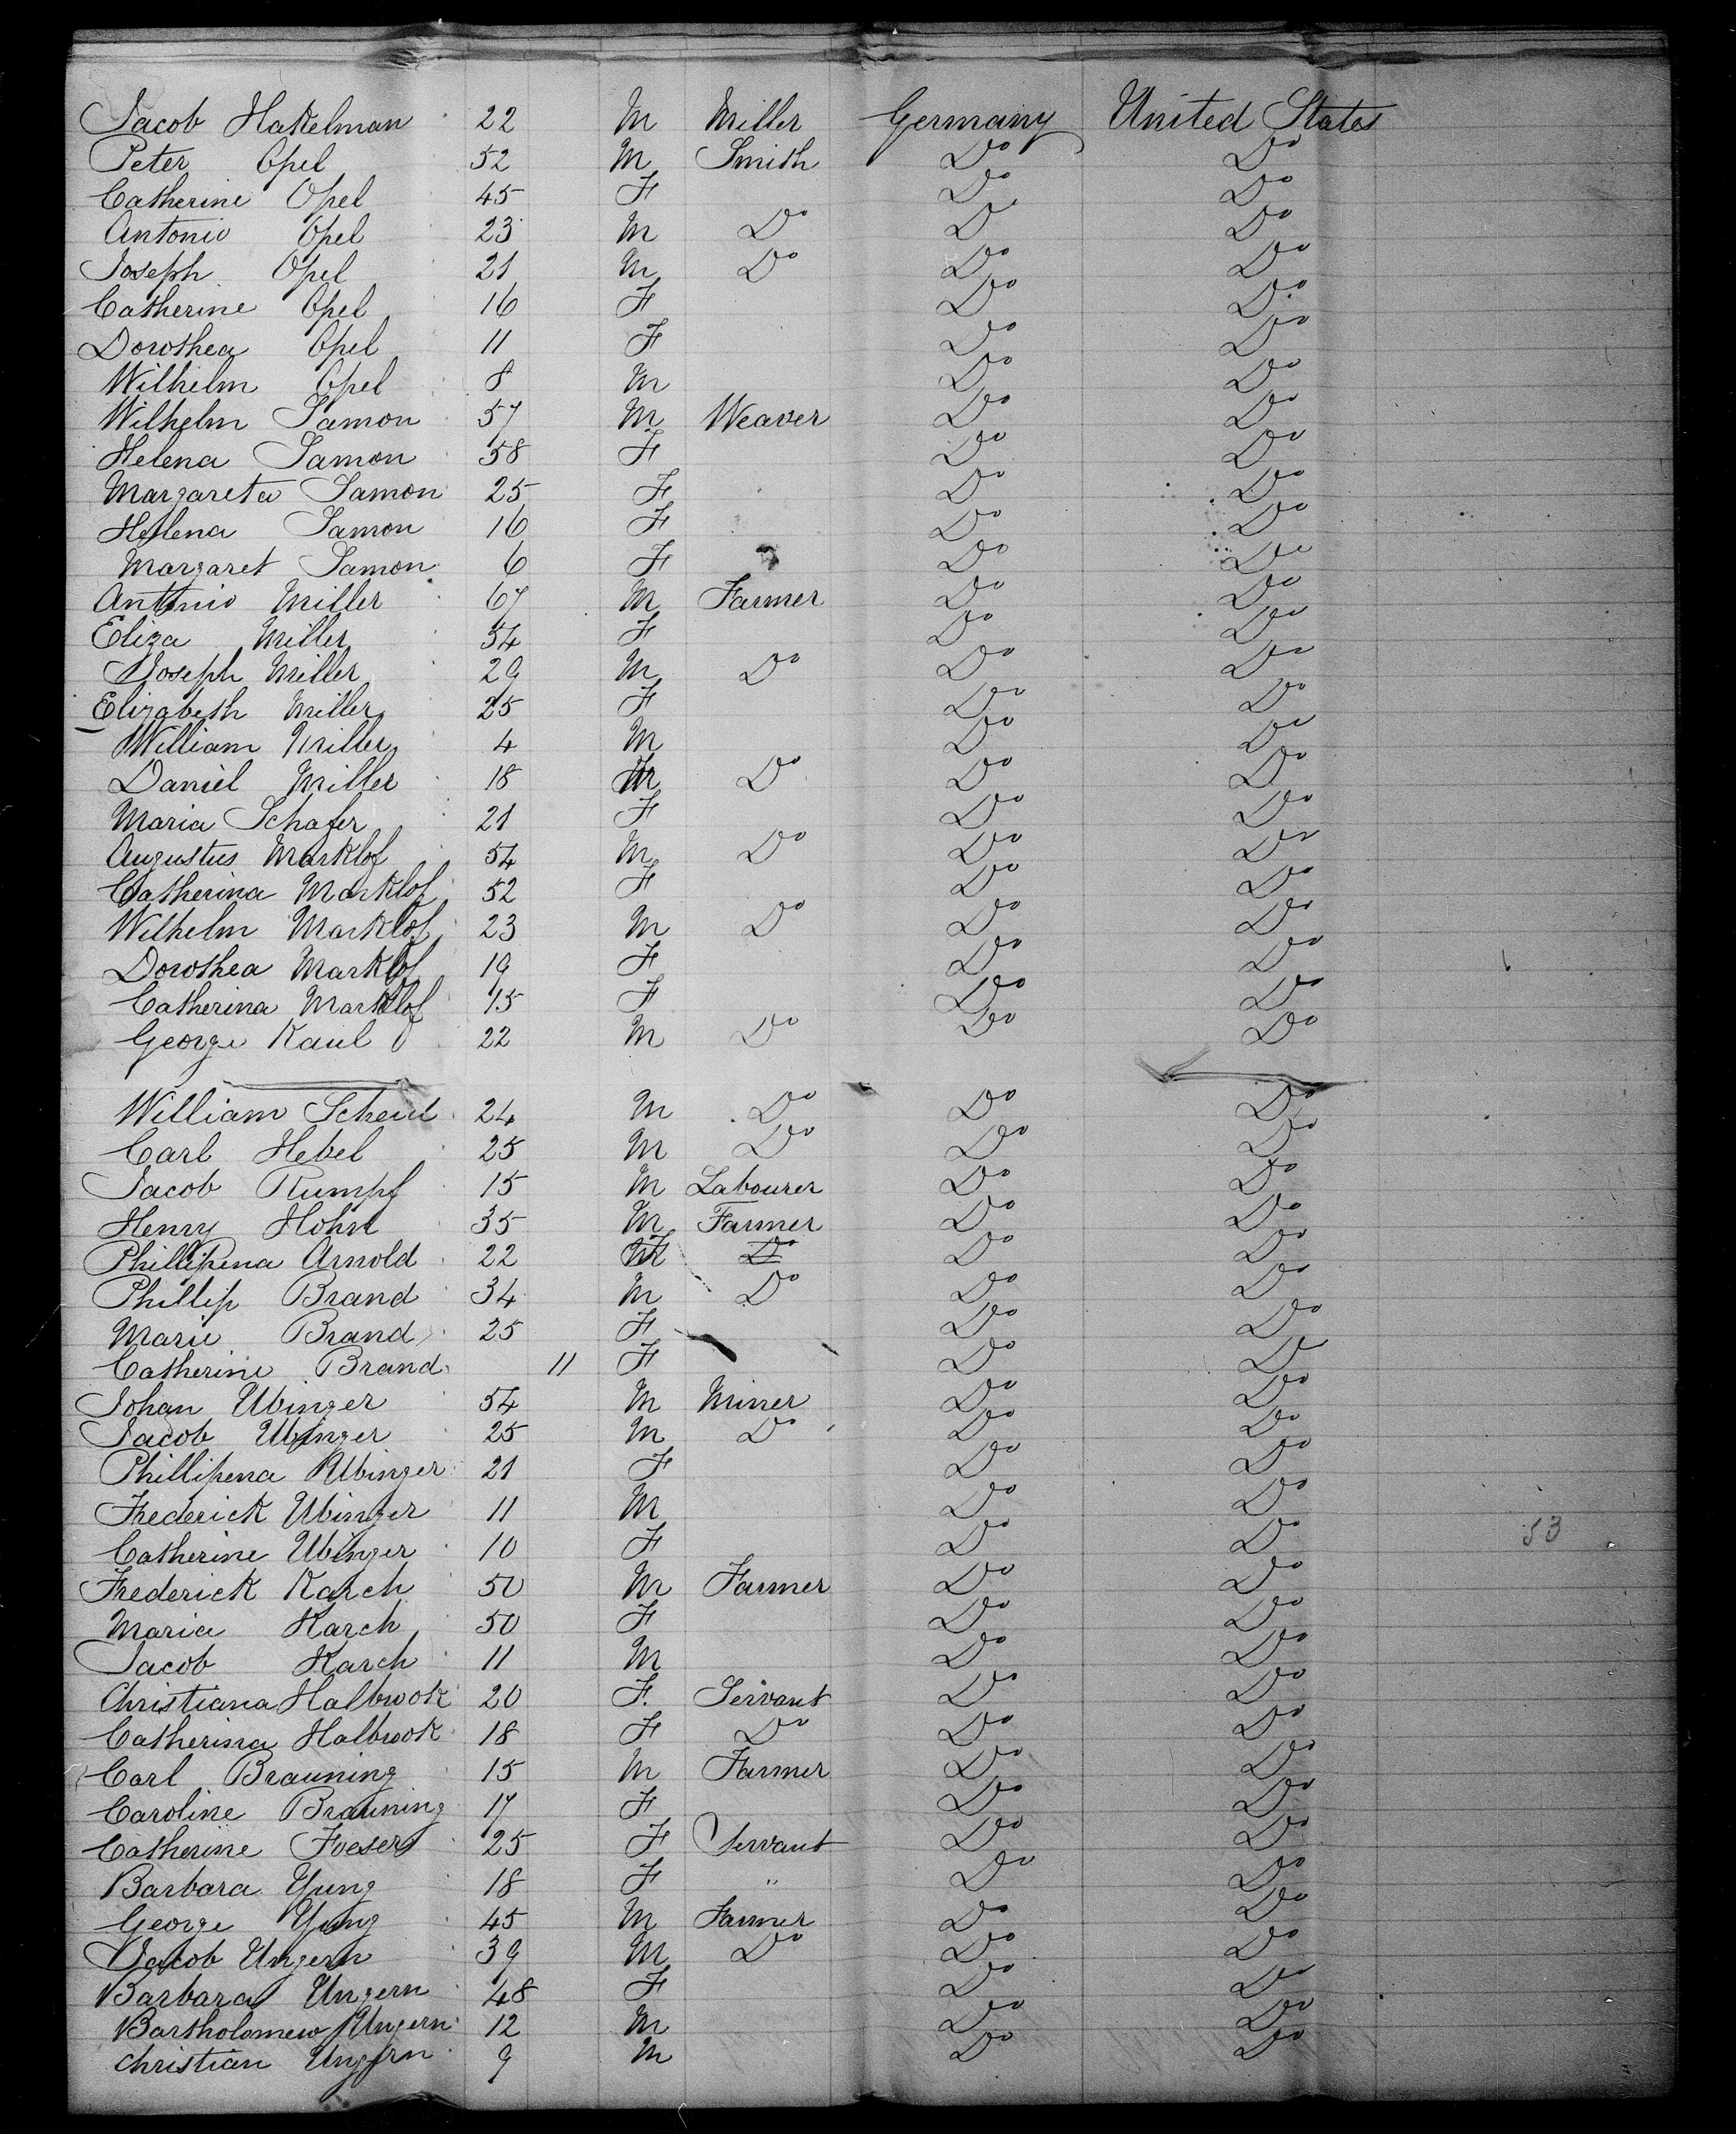 Jacob Hakelman 22 M Miller Germany United States
Peter Opel 52 M Smith Do Do
Catherine Opel 45 F Do Do
Antonio Opel 23 M Do D Do
Joseph Opel 21 M Do Do Do
Catherine Opel 16 F Do Do
Dorothea Opel 11 F Do Do
Wilhelm Opel 8 M Do Do
Wilhelm Samon 57 M Weaver Do Do
Helena Samon 58 F Do Do
Margareta Samon 25 F Do Do
Hellena Samon 16 F Do Do
Margaret Samon 6 F Do Do
Antonio Miller 67 M Farmer Do Do
Eliza Miller 54 F Do Do
Joseph Miller 29 M Do Do Do
Elizabeth Miller 25 F Do Do
William Miller 4 M Do Do
Daniel Miller 18 M Do Do Do
Maria Schafer 21 F Do Do
Augustus Marklof 54 M Do Do Do
Catherina Marklof 52 F Do Do
Wilhelm Marklof 23 M Do Do Do
Dorothea Marklof 19 F Do Do
Catherina Marklof 15 F Do Do
George Kaul 22 M Do Do Do
William 24 M Do Do Do
Carl Hebel 25 M Do Do Do
Jacob Rumpf 15 M Labourer Do Do
Henry Hohn 35 M Farmer Do Do
Phillipena Arnold 22 F Do Do Do
Phillip Brand 34 M Do Do Do
Marie Brand 25 F Do Do
Catherine Brand 11 F Do Do
Johan Ubinger 54 M Miner Do Do
Jacob Ubinger 25 M Do Do Do
Phillipena Ubinger 21 F Do Do
Frederick Ubinger 11 M Do Do
Catherine Ubinger 10 F Do Do
53
Frederick Karch 50 M Farmer Do Do
Maria Karch 50 F Do Do
Jacob Karch 11 M Do Do
Christiana Halbrook 20 F. Servant Do Do
Catherina Halbrook 18 F Do Do Do
Carl Brauning 15 M Farmer Do Do
Caroline Brauning 17 F Do Do
Catherine Foeser 25 F Servant Do Do
Barbara Yung 18 F " Do Do
George Yung 45 M Farmer Do Do
Jacob Ungern 39 M Do Do Do
Barbara Ungern 48 F Do Do
Bartholomew Ungern 12 M Do Do
Christian Ungern 9 M Do Do